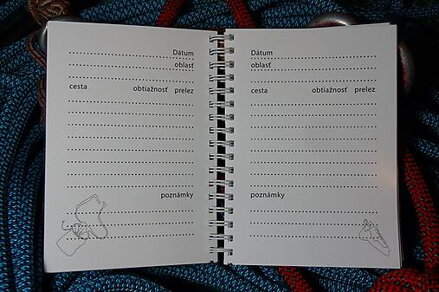 Dátum
oblasť
cesta obtiažnosť prelez
poznámky
Dátum
oblasť
cesta obtiažnosť prelez
poznámky